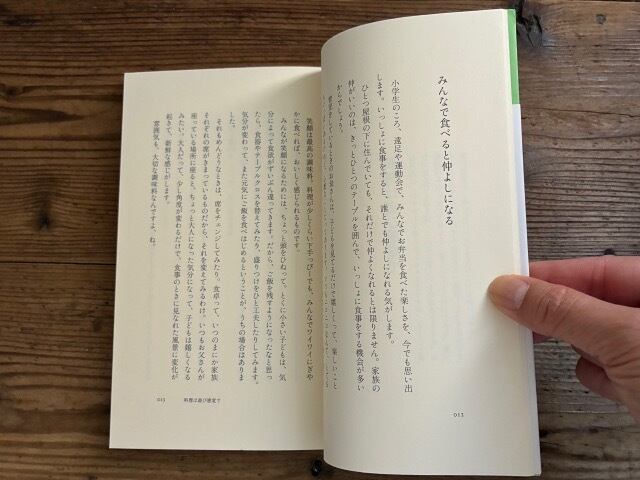 みんなで食べると仲よしになる
小学生のころ、遠足や運動会で、みんなでお弁当を食べた楽しさを、今でも思い出
します。いっしょに食事をすると、誰とでも仲よしになれる気がします。
ひとつ屋根の下に住んでいても、それだけで仲よくなれるとは限りません。家族の
仲がいいのは、きっとひとつのテーブルを囲んで、いっしょに食事をする機会が多い
からでしょう。
012
笑顔は最高の調味料。料理が少しくらい下手っぴーでも、みんなでワイワイにぎや
かに食べれば、おいしく感じられるものです。
みんなが笑顔になるためには、ちょっと頭をひねって。とくに小さい子どもは、気
分によって食欲がずいぶん違ってきます。だから、ご飯を残すようになったなと思っ
たら、食器やテーブルクロスを替えてみたり、盛りつけをひと工夫したりしてみます。
気分が変わって、また元気にご飯を食べはじめるということが、うちの場合はありま
した。
それもめんどうなときは、席をチェンジしてみたり。食卓って、いつのまにか家族
それぞれの席がきまっているものだから、それを変えてみるわけ。いつもお父さんが
座っている場所に座ると、ちょっと大人になった気分になって、子どもは嬉しくなる
みたい。大人だって、少し角度が変わるだけで、食事のときに見なれた風景に変化が
起きて、新鮮な感じがします。
雰囲気も、大切な調味料なんですよ、ね。
013
料理は遊び感覚で